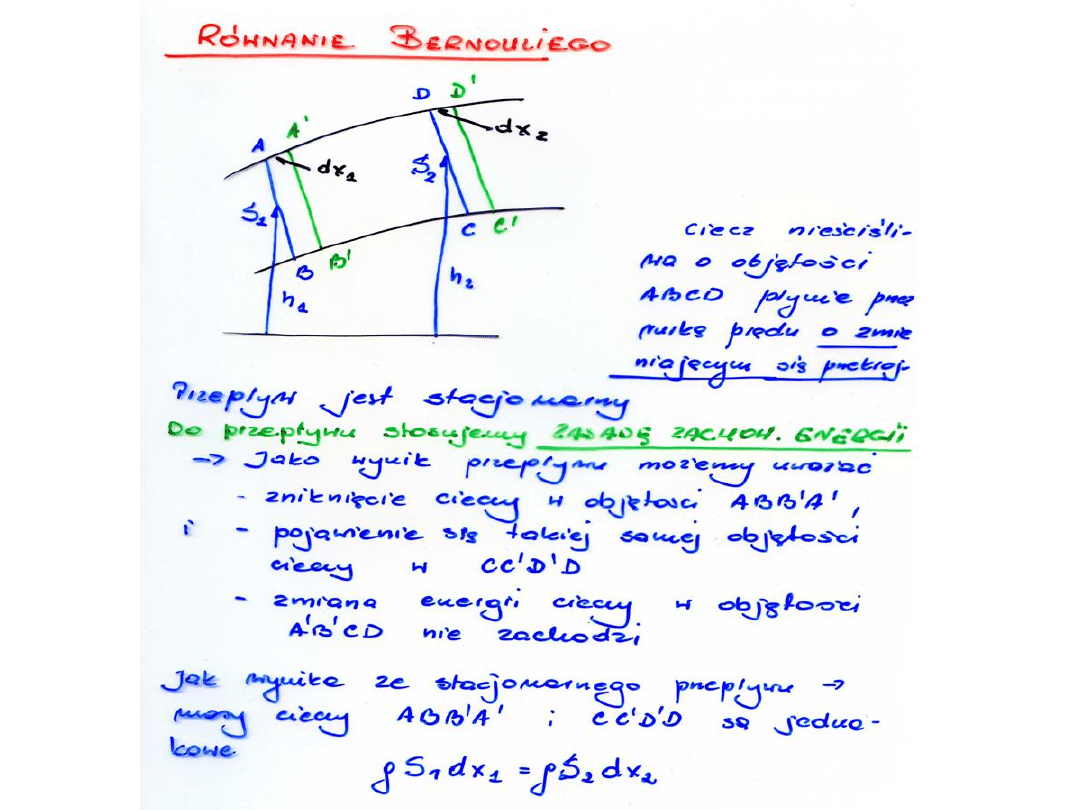 RÓWNANIE BERNOULIEGO
D D'
dx₂
A A'
dx₁
S₂
S₁
C C'
B B'
h₂
h₁
ciecz nieściśli-
wa o objętości
ABCD płynie prze
rurkę prądu o zmie
niającym się przekroj-
Przepływ jest stacjonarny
Do przepływu stosujemy ZASADĘ ZACHOW. ENERGII
→ Jako wynik przepływu możemy uważać
- zniknięcie cieczy w objętości ABB'A',
i - pojawienie się takiej samej objętości
cieczy w CC'D'D
- zmiana energii cieczy w objętości
A'B'CD nie zachodzi
Jak wynika ze stacjonarnego przepływu →
masy cieczy ABB'A' i CC'D'D są jedna-
kowe
ρS₁dx₁ = ρS₂dx₂